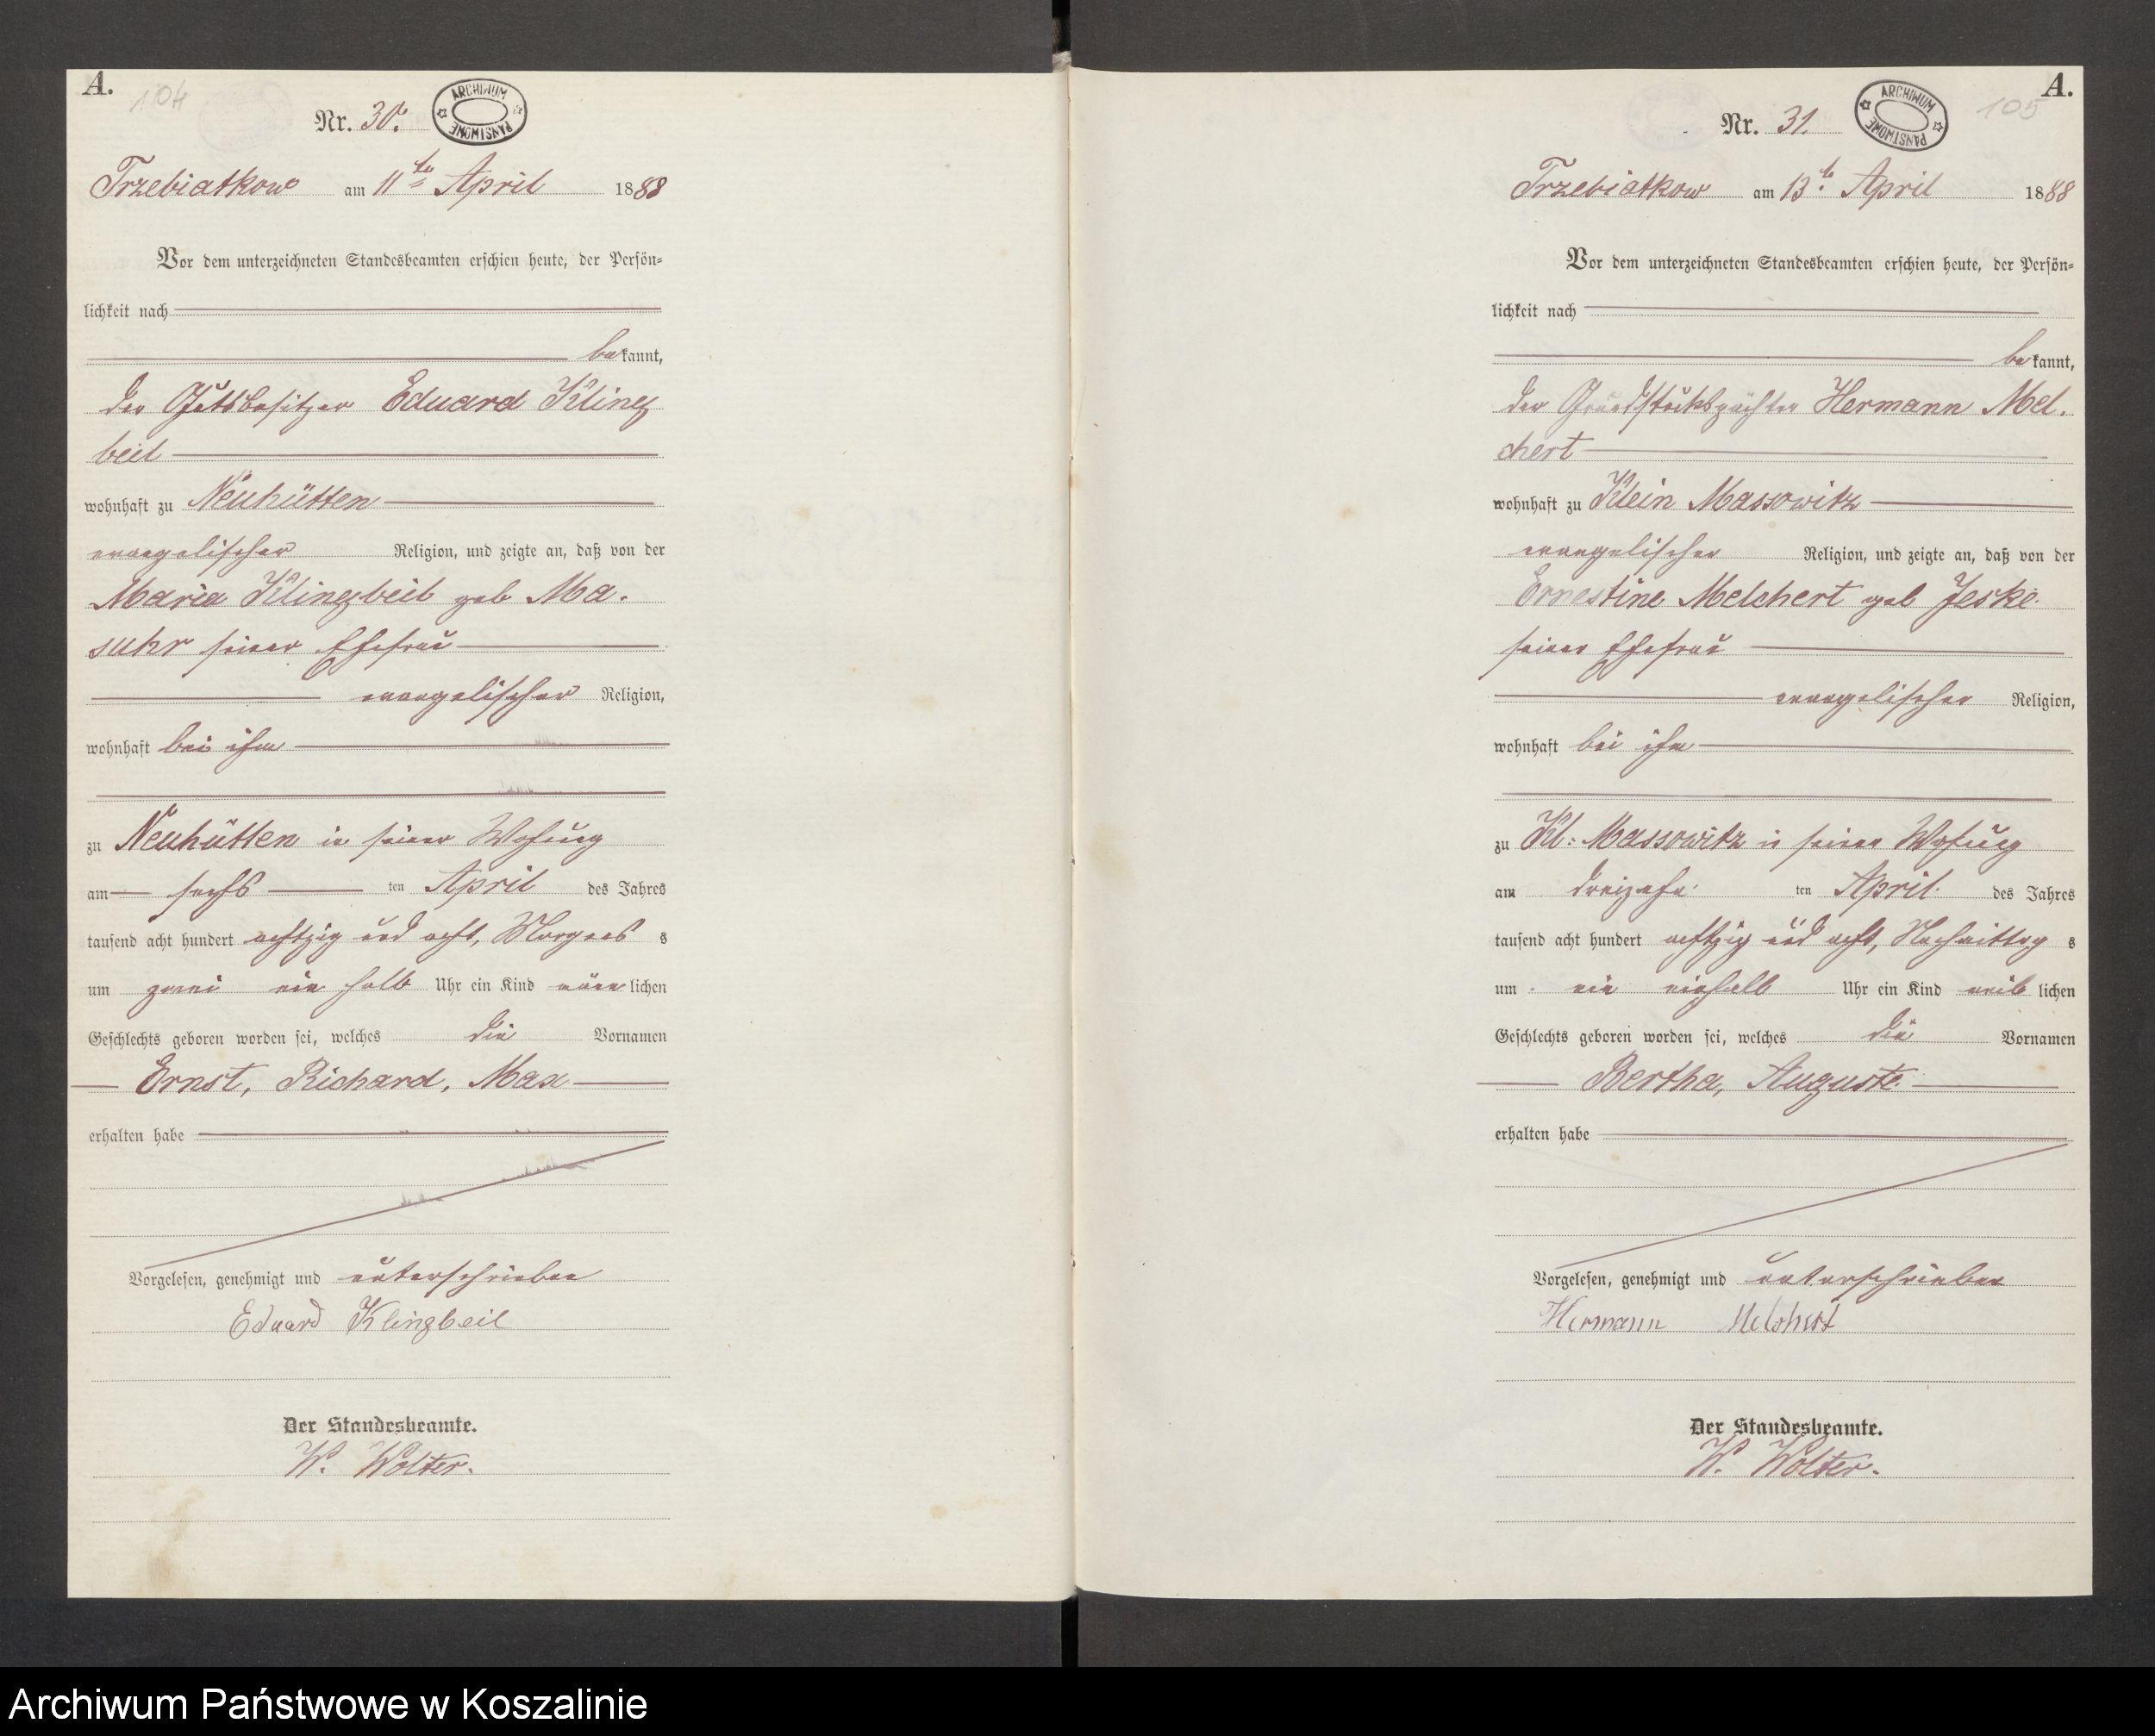 A.
104
Nr. 30.
ARCHIWUM PAŃSTWOWE
Trzebiatkow am 11ten April 1888
Vor dem unterzeichneten Standesbeamten erschien heute, der Persön-
lichkeit nach
bekannt,
der Gutsbesitzer Eduard Kling
beil
wohnhaft zu Neuhütten
evangelischer Religion, und zeigte an, daß von der
Maria Klingbeil geb Ma.
suhr seiner Ehefrau
evangelischer Religion,
wohnhaft bei ihm
zu Neuhütten in seiner Wohnung
am sechs ten April des Jahres
tausend acht hundert achtzig und acht, Morgens s
um zwei ein halb Uhr ein Kind männlichen
Geschlechts geboren worden sei, welches die Vornamen
Ernst, Richard, Max
erhalten habe
Vorgelesen, genehmigt und unterschrieben
Eduard Klingbeil
Der Standesbeamte.
W. Wolter.
A.
105
Nr. 31.
ARCHIWUM PAŃSTWOWE
Trzebiatkow am 13t. April 1888
Vor dem unterzeichneten Standesbeamten erschien heute, der Persön-
lichkeit nach
bekannt,
der Grundstückspächter Hermann Mel.
chert
wohnhaft zu Klein Massowitz
evangelischer Religion, und zeigte an, daß von der
Ernestine Melchert geb Jeske.
seiner Ehefrau
evangelischer Religion,
wohnhaft bei ihm
zu Kl: Massowitz in seiner Wohnung
am dreizehn ten April. des Jahres
tausend acht hundert achtzig und acht, Nachmittag s
um ein einhalb Uhr ein Kind weiblichen
Geschlechts geboren worden sei, welches die Vornamen
Bertha, Auguste.
erhalten habe
Vorgelesen, genehmigt und unterschrieben
Hermann Melchert
Der Standesbeamte.
W. Wolter.
Archiwum Państwowe w Koszalinie